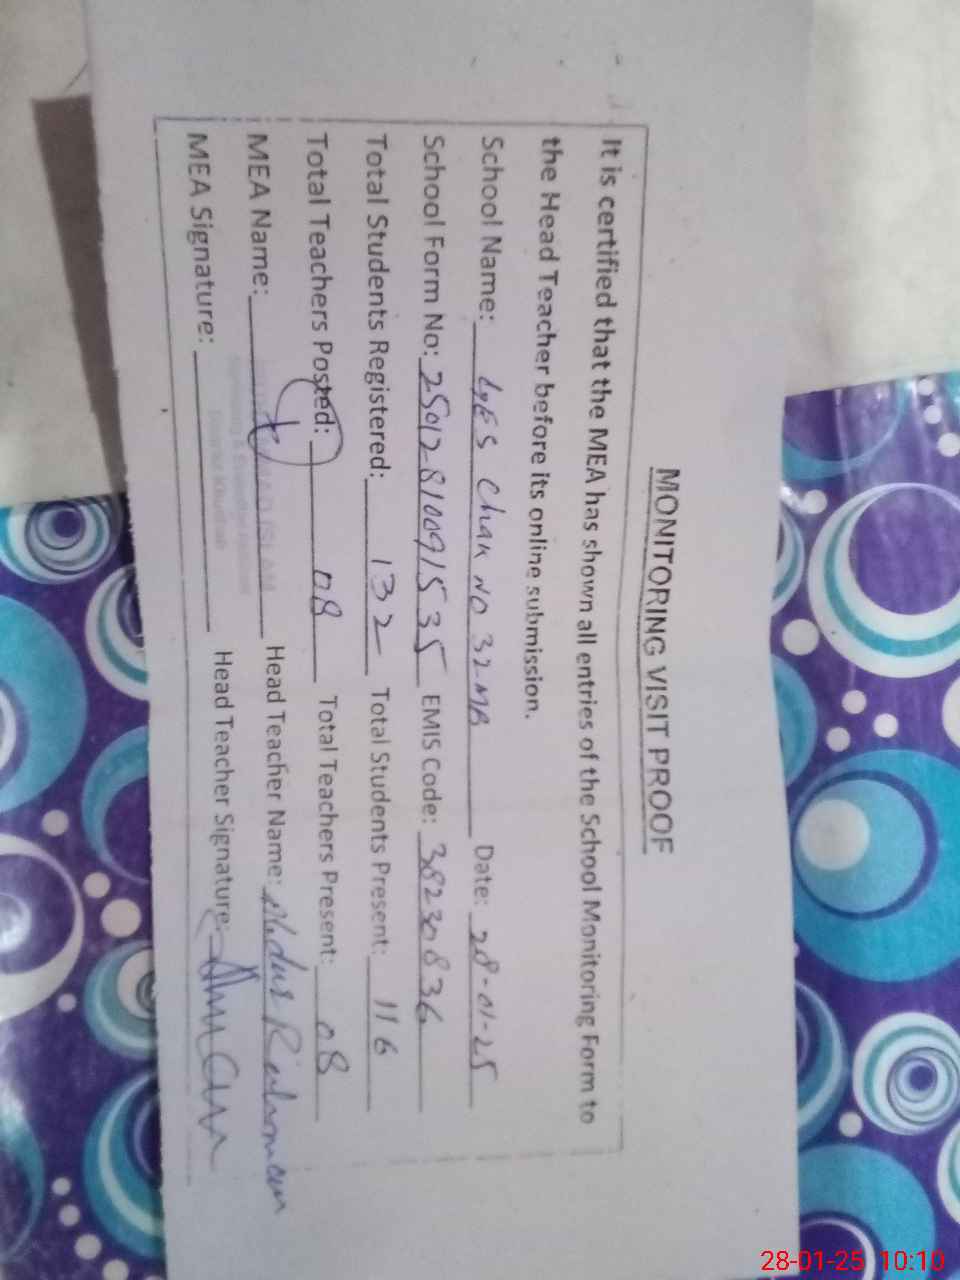 MONITORING VISIT PROOF
It is certified that the MEA has shown all entries of the School Monitoring Form to
the Head Teacher before its online submission.
School Name: Chak NO 32 MB Date: 28-01-25
School Form No: 25012810091535 EMIS Code: 38230836
Total Students Registered: 132 Total Students Present: 116
Total Teachers Posted: 08 Total Teachers Present: 08
MEA Name: Head Teacher Name: Abdur Rehman
MEA Signature: Head Teacher Signature:
28-01-25 10:10